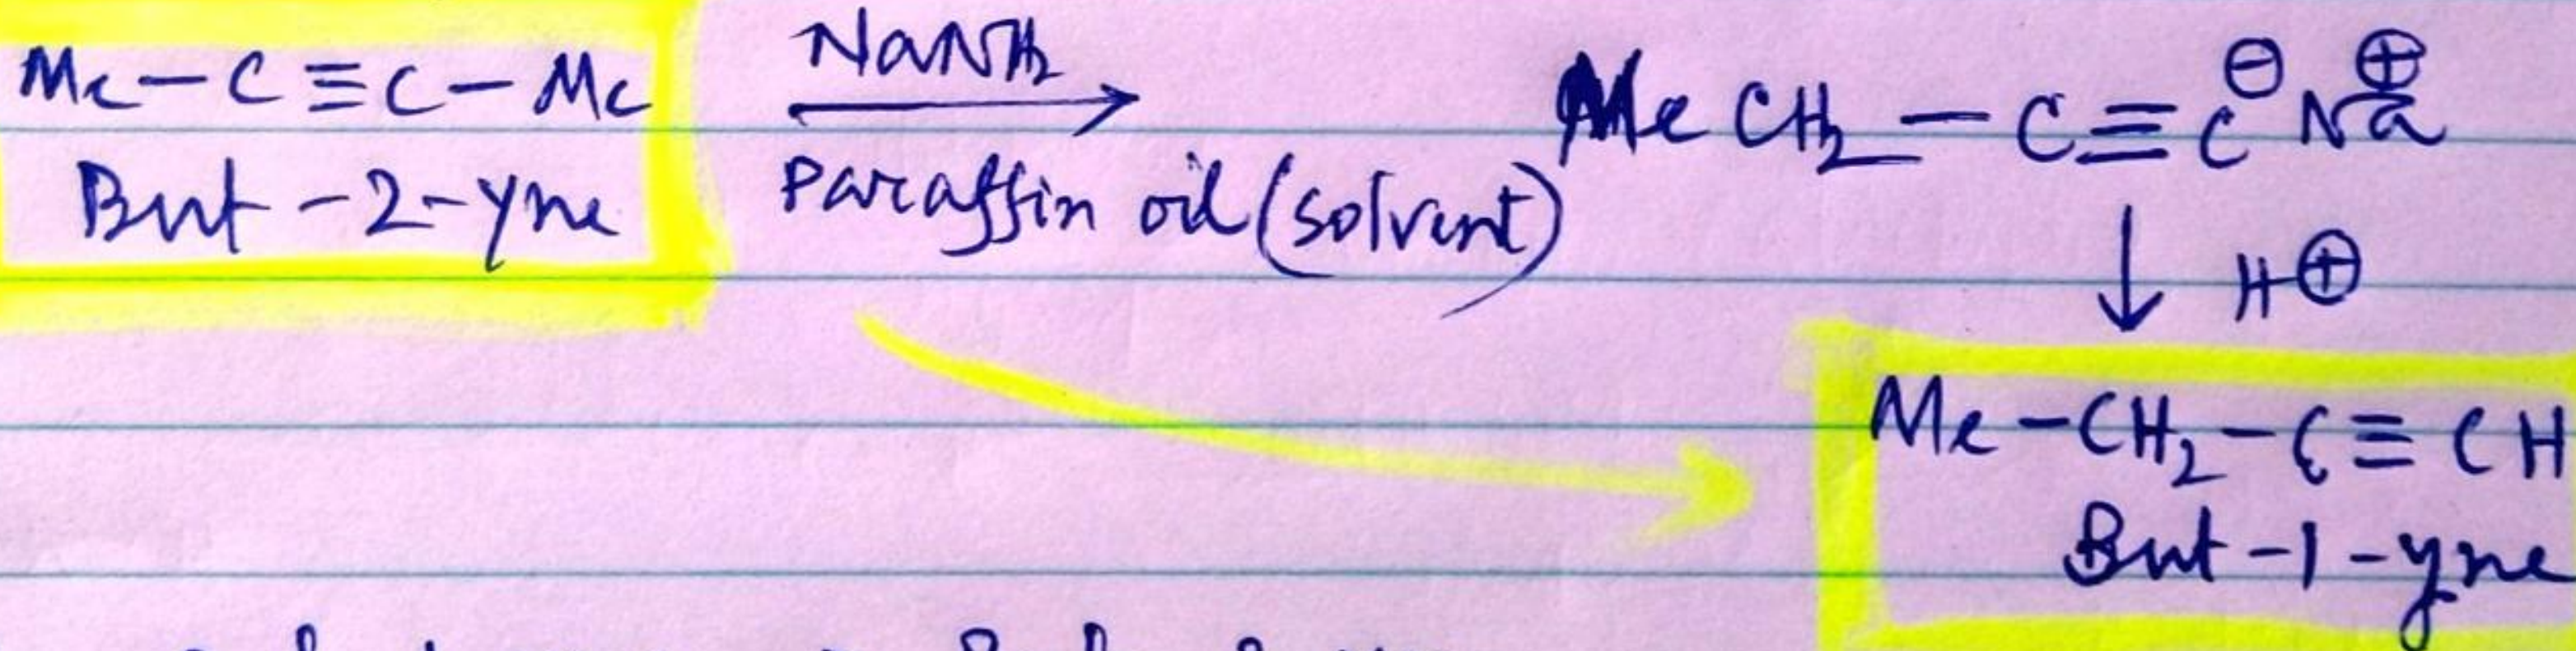 Me - C ≡ C - Me
But - 2 - yne
NaNH2
Paraffin oil (solvent)
Me CH2 - C ≡ C⊖ Na⊕
↓ H⊕
Me - CH2 - C ≡ CH
But - 1 - yne